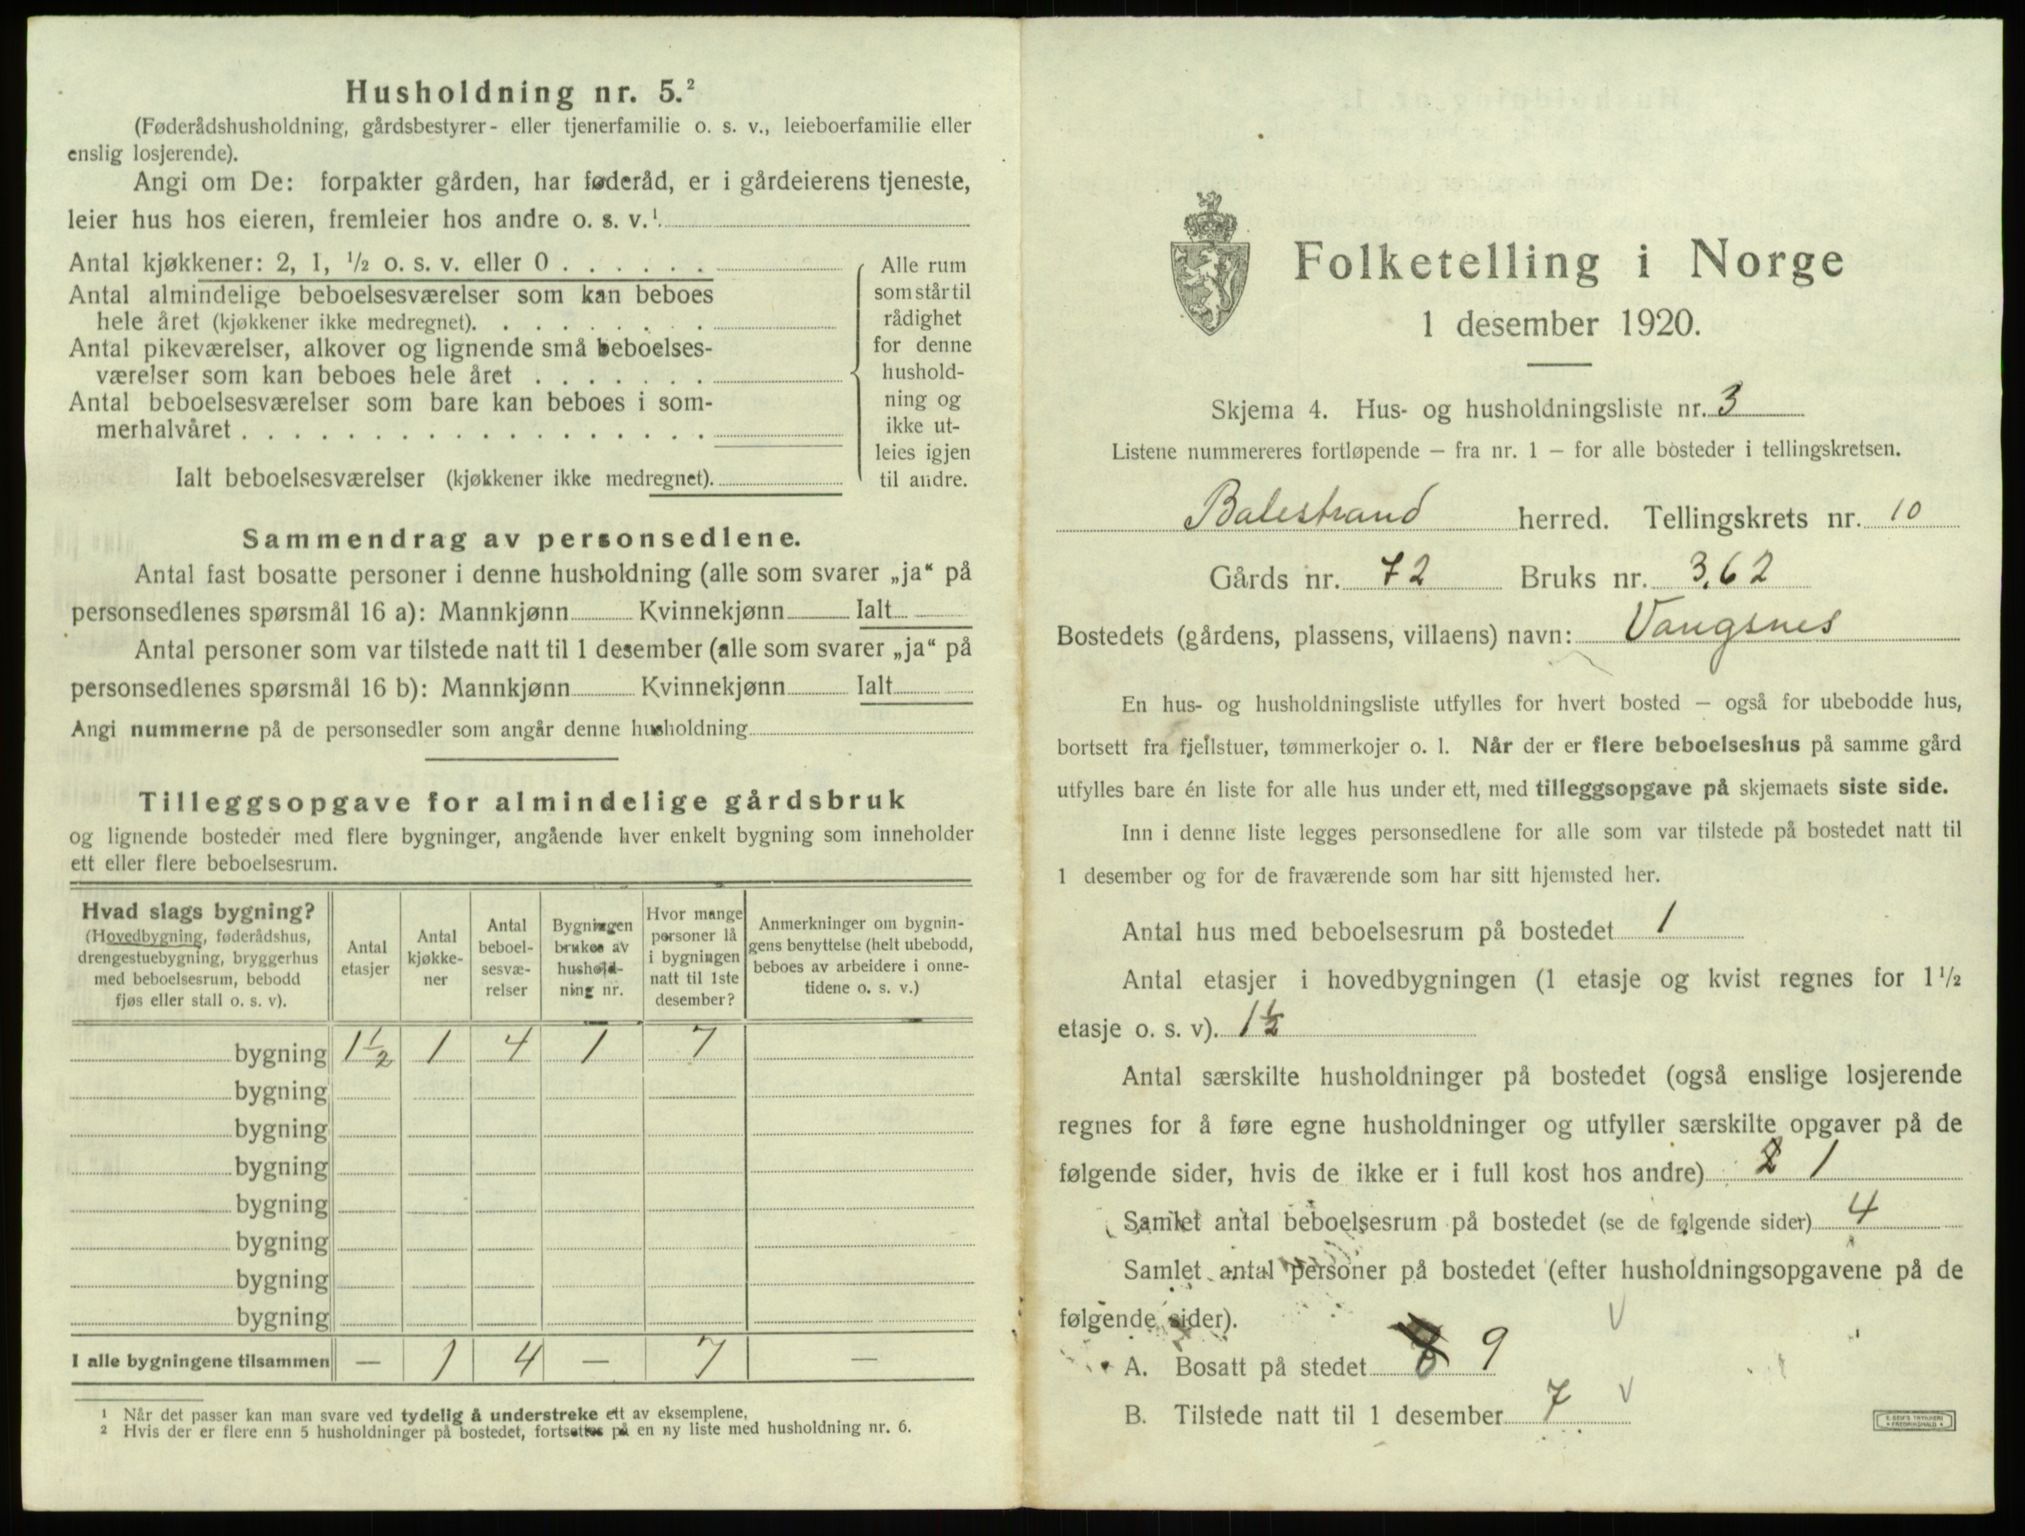 Husholdning nr. 5.²
(Føderådshusholdning, gårdsbestyrer- eller tjenerfamilie o. s. v., leieboerfamilie eller
enslig losjerende).
Angi om De: forpakter gården, har føderåd, er i gårdeierens tjeneste,
leier hus hos eieren, fremleier hos andre o. s. v.¹
Antal kjøkkener: 2, 1, ½ o. s. v. eller 0 . . . . . .
Antal almindelige beboelsesværelser som kan beboes
hele året (kjøkkener ikke medregnet). . . . . . . . .
Antal pikeværelser, alkover og lignende små beboelses-
værelser som kan beboes hele året . . . . . . .
Antal beboelsesværelser som bare kan beboes i som-
merhalvåret . . . . . . . . . . . . . . . . . .
Ialt beboelsesværelser (kjøkkener ikke medregnet).
Alle rum
som står til
rådighet
for denne
hushold-
ning og
ikke ut-
leies igjen
til andre.
Sammendrag av personsedlene.
Antal fast bosatte personer i denne husholdning (alle som svarer „ja“ på
personsedlenes spørsmål 16 a): Mannkjønn Kvinnekjønn Ialt
Antal personer som var tilstede natt til 1 desember (alle som svarer „ja“ på
personsedlenes spørsmål 16 b): Mannkjønn Kvinnekjønn Ialt
Angi nummerne på de personsedler som angår denne husholdning
Tilleggsopgave for almindelige gårdsbruk
og lignende bosteder med flere bygninger, angående hver enkelt bygning som inneholder
ett eller flere beboelsesrum.
Hvad slags bygning?
(Hovedbygning, føderådshus,
drengestuebygning, bryggerhus
med beboelsesrum, bebodd
fjøs eller stall o. s. v).
Antal
etasjer
Antal
kjøkke-
ner
Antal
beboel-
sesvæ-
relser
Bygningen
brukes av
hushold-
ning nr.
Hvor mange
personer lå
i bygningen
natt til 1ste
desember?
Anmerkninger om bygnin-
gens benyttelse (helt ubebodd,
beboes av arbeidere i onne-
tidene o. s. v.)
bygning 1½ 1 4 1 7
bygning
bygning
bygning
bygning
bygning
bygning
bygning
I alle bygningene tilsammen — 1 4 — 7 —
¹ Når det passer kan man svare ved tydelig å understreke ett av eksemplene,
² Hvis der er flere enn 5 husholdninger på bostedet, fortsettes på en ny liste med husholdning nr. 6.
Folketelling i Norge
1 desember 1920.
Skjema 4. Hus- og husholdningsliste nr. 3
Listene nummereres fortløpende – fra nr. 1 – for alle bosteder i tellingskretsen.
Balestrand herred. Tellingskrets nr. 10
Gårds nr. 72 Bruks nr. 3,62
Bostedets (gårdens, plassens, villaens) navn: Vangsnes
En hus- og husholdningsliste utfylles for hvert bosted – også for ubebodde hus,
bortsett fra fjellstuer, tømmerkojer o. l. Når der er flere beboelseshus på samme gård
utfylles bare én liste for alle hus under ett, med tilleggsopgave på skjemaets siste side.
Inn i denne liste legges personsedlene for alle som var tilstede på bostedet natt til
1 desember og for de fraværende som har sitt hjemsted her.
Antal hus med beboelsesrum på bostedet 1
Antal etasjer i hovedbygningen (1 etasje og kvist regnes for 1½
etasje o. s. v). 1½
Antal særskilte husholdninger på bostedet (også enslige losjerende
regnes for å føre egne husholdninger og utfyller særskilte opgaver på de
følgende sider, hvis de ikke er i full kost hos andre) 2 1
Samlet antal beboelsesrum på bostedet (se de følgende sider) 4
Samlet antal personer på bostedet (efter husholdningsopgavene på de
følgende sider).
A. Bosatt på stedet 8 9
B. Tilstede natt til 1 desember 7